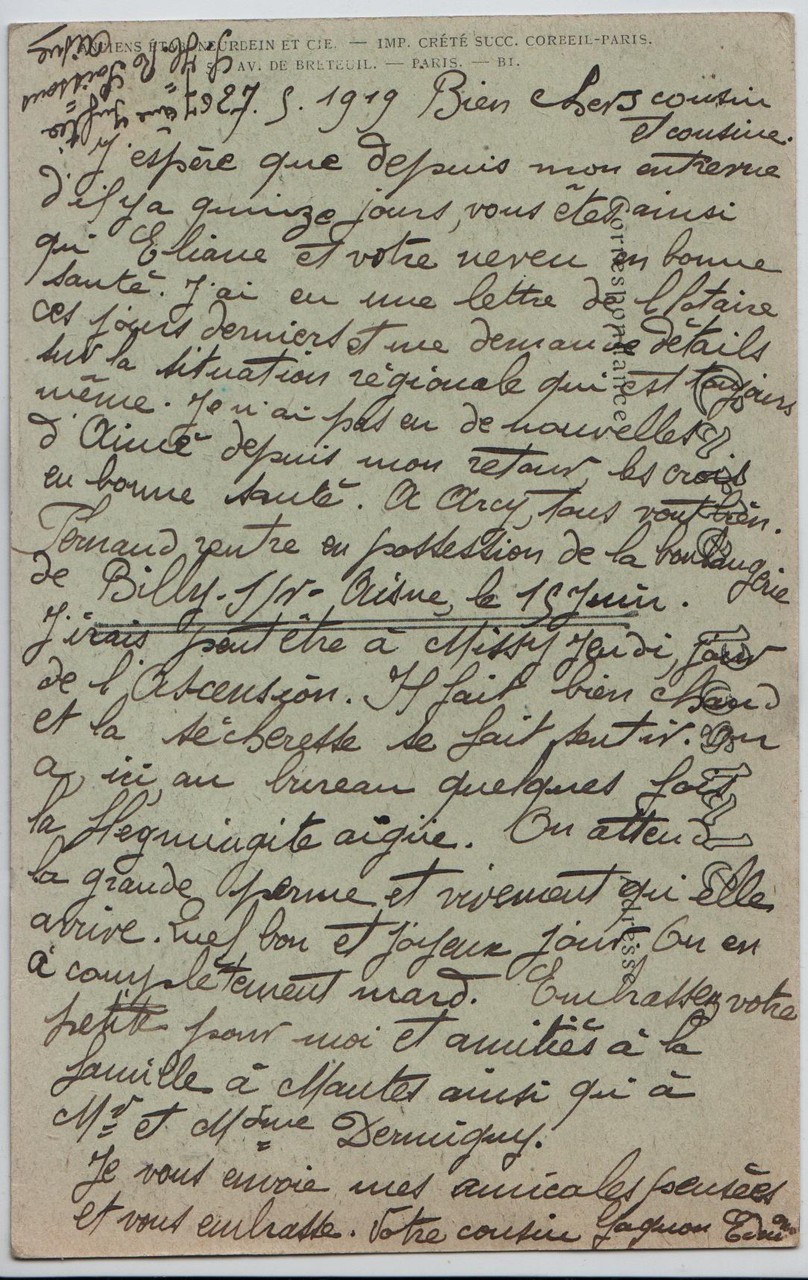 ANCIENS ÉTABL. NEURDEIN ET CIE. — IMP. CRÉTÉ SUCC. CORBEIL-PARIS.
AV. DE BRETEUIL. — PARIS. — BI.
Soissons
Aisne
27. 5. 1919 Bien chers cousin
et cousine.
J'espère que depuis mon entrevue
d'il y a quinze jours, vous êtes ainsi
qu' Eliane et votre neveu en bonne
santé. J'ai eu une lettre de l' Notaire
ces jours derniers et me demande détails
sur la situation régionale qui est toujours
même. Je n'ai pas eu de nouvelles
d'Aimé depuis mon retour, les crois
en bonne santé. A Arcy, tous vont bien.
Fernand rentre en possession de la boulangerie
de Billy-s/r-Aisne, le 15 Juin.
J'irais peut être à Missy Jeudi, jour
de l'Ascension. Il fait bien chaud
et la sécheresse se fait sentir. On
a, ici, au bureau quelques fois
la flegmingite aigüe. On attend
la grande perme et vivement qu'elle
arrive. Quel bon et joyeux jour. On en
à complètement mard. Embrassez votre
petite pour moi et amitiés à la
famille à Mantes ainsi qu'à
Mr et Mme Dermigny.
Je vous envoie mes amicales pensées
et vous embrasse. Votre cousin Gagnon
Correspondance
Adresse
CARTE POSTALE